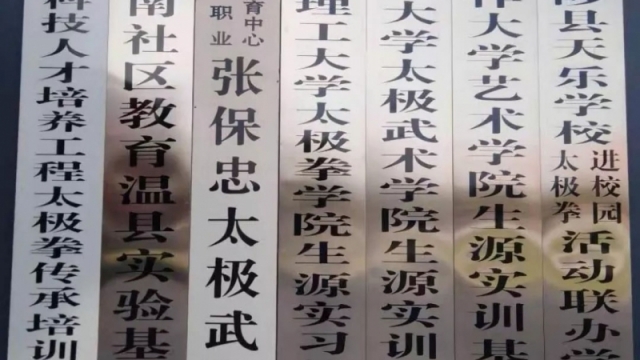 科技人才培养工程太极拳传承培训
南社区教育温县实验基
职业
育中心
张保忠太极武
理工大学太极拳学院生源实习
大学太极武术学院生源实训
大学艺术学院生源实训基
县天乐学校
太极拳
进校园
活动联办学